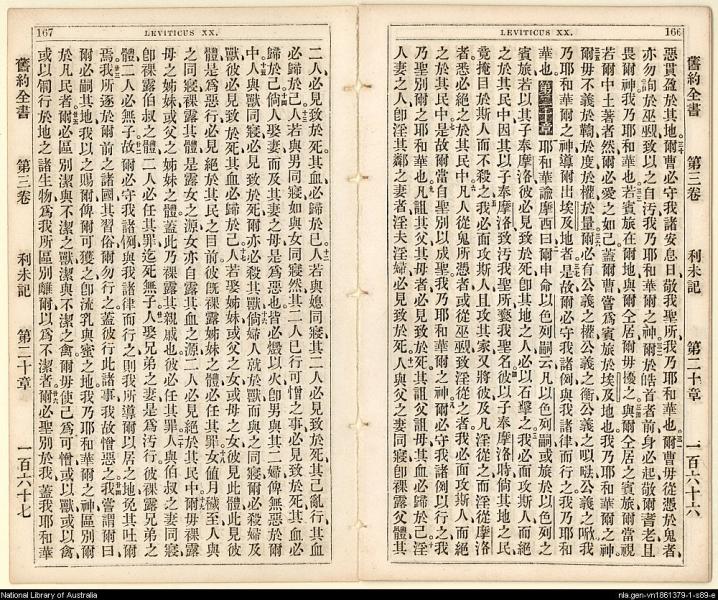 LEVITICUS XX. 166
舊約全書 第三卷 利未記 第二十章 一百六十六
惡貫盈於其地爾曹必守我諸安息日敬我聖所我乃耶和華也爾曹毋從憑於鬼者
亦勿詢於巫覡致以之自汚我乃耶和華爾之神爾於皓首者前身必起敬爾耆老且
畏爾神我乃耶和華也若賓旅在爾地與爾仝居爾毋擾之與爾仝居之賓旅爾當視
若爾中土著者然爾必愛之如己蓋爾曹嘗爲賓旅於埃及地也我乃耶和華爾之神
爾毋不義於鞫於度於權於量爾必有公義之權公義之衡公義之公義之我
乃耶和華爾之神導爾出埃及地者是故爾必守我諸例與我諸律而行之我乃耶和
華也第二十章耶和華諭摩西曰爾申命以色列嗣云凡以色列嗣或旅於以色列之
賓旅若以其子奉摩洛彼必見致於死卽其地之人必以石擊之我必面攻斯人而絕
之於其民中因其以子奉摩洛致汚我聖所褻我聖名彼以子奉摩洛時倘其地之民
竟掩目於斯人而不殺之我必面攻斯人且攻其家又將彼及凡淫從之而淫從摩洛
者悉必絕之於其民中凡人從鬼所憑者或從巫覡致淫從之者我必面攻斯人而絕
之於其民中是故爾當自聖別以成聖我乃耶和華爾之神爾必守我諸例以行之我
乃聖別爾之耶和華也凡詛其父其母者必見致於死其詛父詛母其血必歸於己淫
人妻之人卽淫其鄰之妻者淫夫淫婦必見致於死人與父之妻同寢卽裸露父體其
167 LEVITICUS XX.
二人必見致於死其血必歸於己人若與媳同寢其二人必見致於死其己亂行其血
必歸於己人若與男同寢如與女同寢然其二人已行可憎之事必見致於死其血必
歸於己倘人娶妻而及其妻之母是爲惡也皆必燬以火卽男與其二婦俾無惡於爾
中人與獸同寢必見致於死爾亦必殺其獸倘婦人就於獸而與之同寢爾必殺婦及
獸彼必見致於死其血必歸於己人若娶姊妹或父之女或母之女彼見此體此見彼
體是爲惡行必見絕於其民之目前彼旣裸露姊妹之體必任其罪女値月穢至人與
之同寢裸露其體是露女之源女亦自露其血之源二人必見絕於其民中爾毋裸露
母之姊妹或父之姊妹之體蓋此乃裸露其親戚也彼必任其罪人與伯叔之妻同寢
卽裸露伯叔之體二人必任其罪迄死無子人娶兄弟之妻是爲汚行彼裸露兄弟之
體二人必無子故爾必守我諸例與我諸律而行之則我所導爾以居之地免其吐爾
焉我所逐於爾前之諸國其習俗爾勿行之蓋彼行此諸事我故憎惡之我嘗謂爾曰
爾必嗣其地我以之賜爾俾爾可獲之卽流乳與蜜之地我乃耶和華爾之神區別爾
於凡民者爾必區別潔與不潔之獸潔與不潔之禽爾毋使己爲可憎或以獸或以禽
或以行於地之諸生物爲我所區別離爾以爲不潔者爾必聖別於我蓋我耶和華
舊約全書 第三卷 利未記 第二十章 一百六十七
National Library of Australia
nla.gen-vn1861379-1-s89-e